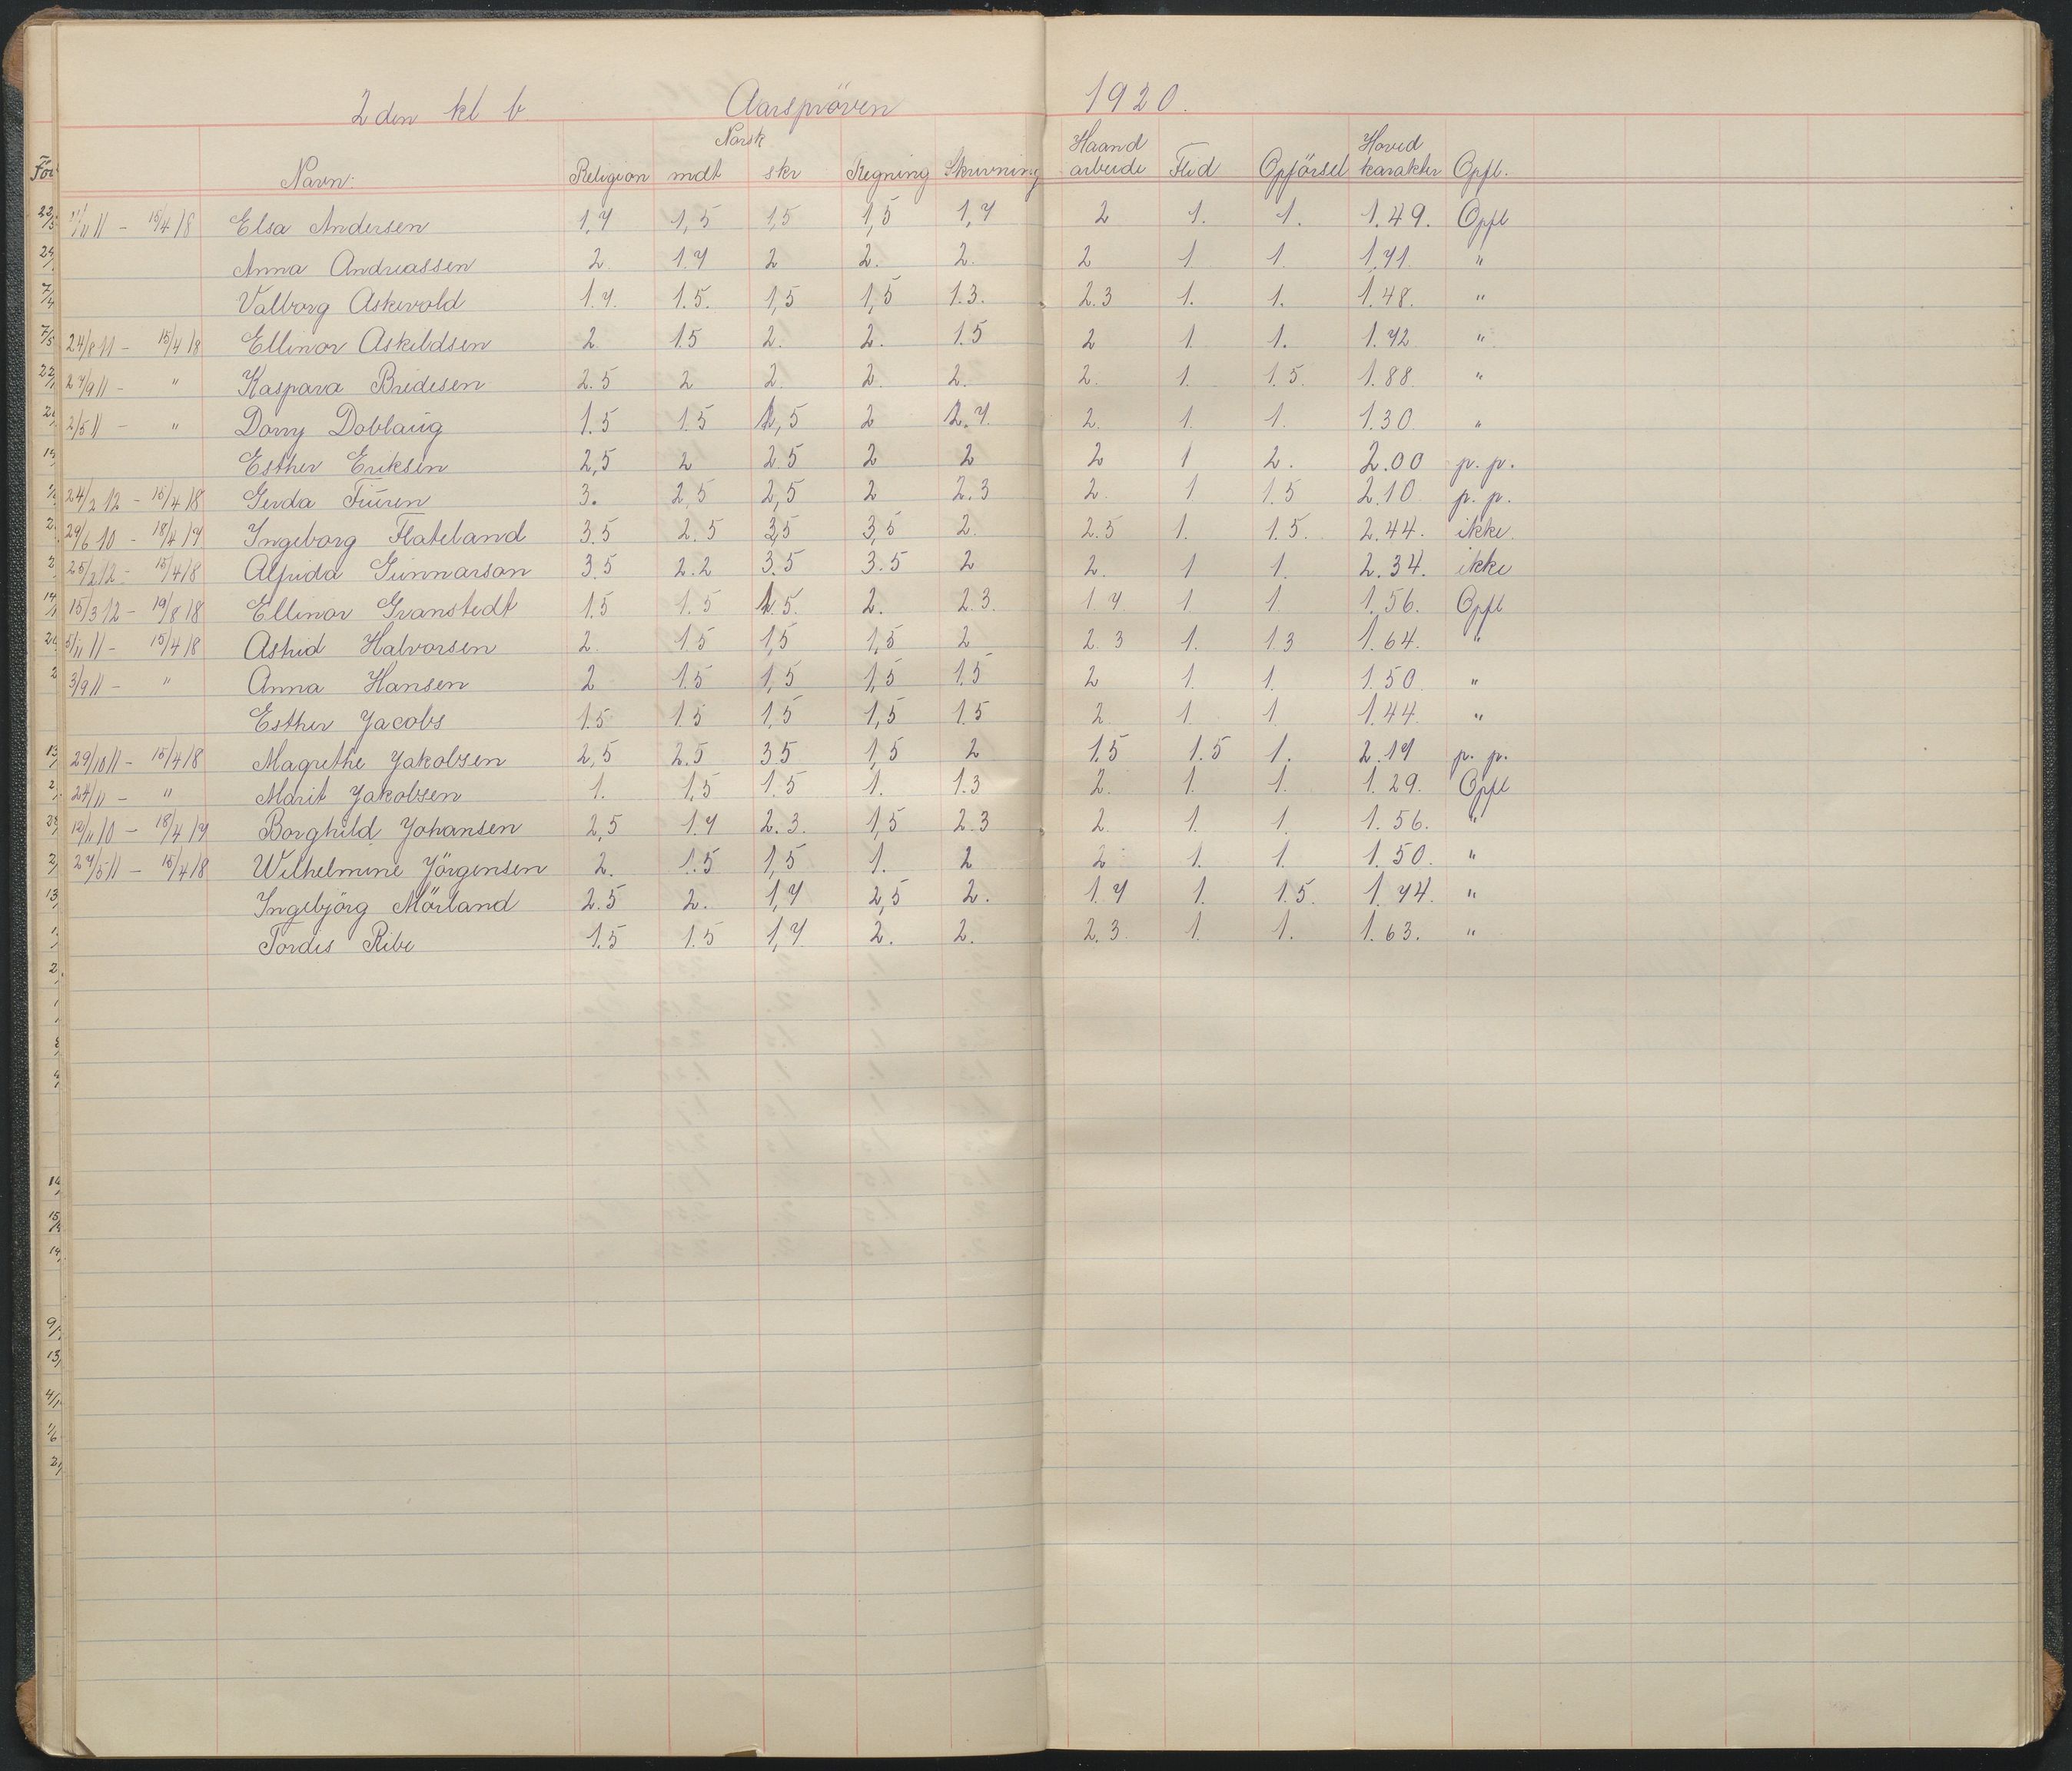 2den kl b Aarspröven 1920.
Navn: Religion Norsk mdt skr Regning Skrivning Haand arbeide Flid Opförsel Hoved karakter Opfl.
11/11 11 - 15/4 18 Elsa Andersen 1,7 1,5 1,5 1,5 1,7 2 1. 1. 1.49. Opfl
Anna Andreassen 2 1.7 2 2. 2. 2 1 1. 1.71 "
Valborg Askevold 1.7. 1.5. 1,5 1,5 1.3. 2.3 1. 1. 1.48. "
24/8 11 - 15/4 18 Ellinor Askildsen 2 1.5 2. 2. 1.5 2 1. 1. 1.72 "
27/9 11 - " Kaspara Bredesen 2.5 2 2. 2. 2. 2. 1. 1.5. 1.88 "
2/5 11 - " Dorry Doblaug 1.5 1.5 1,5 2 2.7. 2. 1. 1. 1.30 "
Esther Eriksen 2,5 2 2.5 2 2 2 1 2. 2.00 p.p.
24/2 12 - 15/4 18 Gerda Furen 3. 2,5 2,5 2 2.3 2. 1 1.5 2.10. p.p.
29/6 10 - 18/4 17 Ingeborg Flateland 3.5 2.5 3,5 3,5 2. 2.5 1. 1.5. 2.44. ikke.
25/2 12 - 15/4 18 Alfrida Gunnarson 3.5 2.2 3.5 3.5 2 2. 1 1. 2.34. ikke
15/3 12 - 19/8 18 Ellinor Granstedt 1.5 1.5 1.5. 2. 2.3. 1.7. 1. 1 1.56. Opfl
5/11 11 - 15/4 18 Astrid Halvorsen 2. 1.5 1,5 1,5 2 2.3 1. 1.3 1.64. "
3/9 11 - " Anna Hansen 2 1.5 1,5 1,5 1.5 2 1. 1. 1.50. "
Esther Jacobs 1.5 1.5 1,5 1,5 1.5 2. 1. 1 1.44. "
29/10 11 - 15/4 18 Magrethe Jakobsen 2,5 2.5 3.5 1,5 2 1.5 1.5 1. 2.17 p.p.
24/11 - " Marit Jakobsen 1. 1,5 1.5 1. 1.3 2. 1. 1. 1.29. Opfl
12/11 10 - 18/4 17 Borghild Johansen 2,5 1.7 2.3. 1,5 2.3 2. 1. 1. 1.56. "
27/5 11 - 15/4 18 Wilhelmine Jörgensen 2. 1.5 1,5 1. 2 2 1. 1. 1.50. "
Ingebjörg Mörland 2.5 2. 1,7 2,5 2. 1.7 1. 1.5. 1.74. "
Tordis Ribe 1.5 1.5 1,7. 2. 2. 2.3 1. 1. 1.63. "